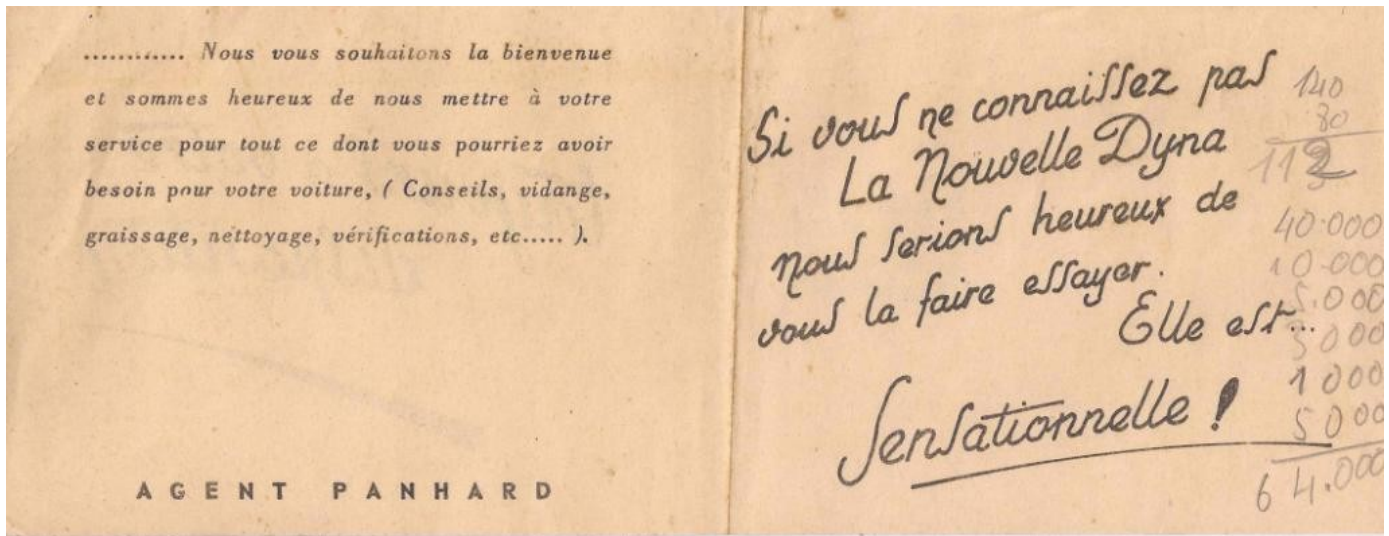 ............ Nous vous souhaitons la bienvenue
et sommes heureux de nous mettre à votre
service pour tout ce dont vous pourriez avoir
besoin pour votre voiture, ( Conseils, vidange,
graissage, nettoyage, vérifications, etc..... ).
AGENT PANHARD
Si vous ne connaissez pas
La Nouvelle Dyna
nous serions heureux de
vous la faire essayer.
Elle est...
Sensationnelle !
140
80
40.000
10.000
5.000
3000
1000
5000
64.000